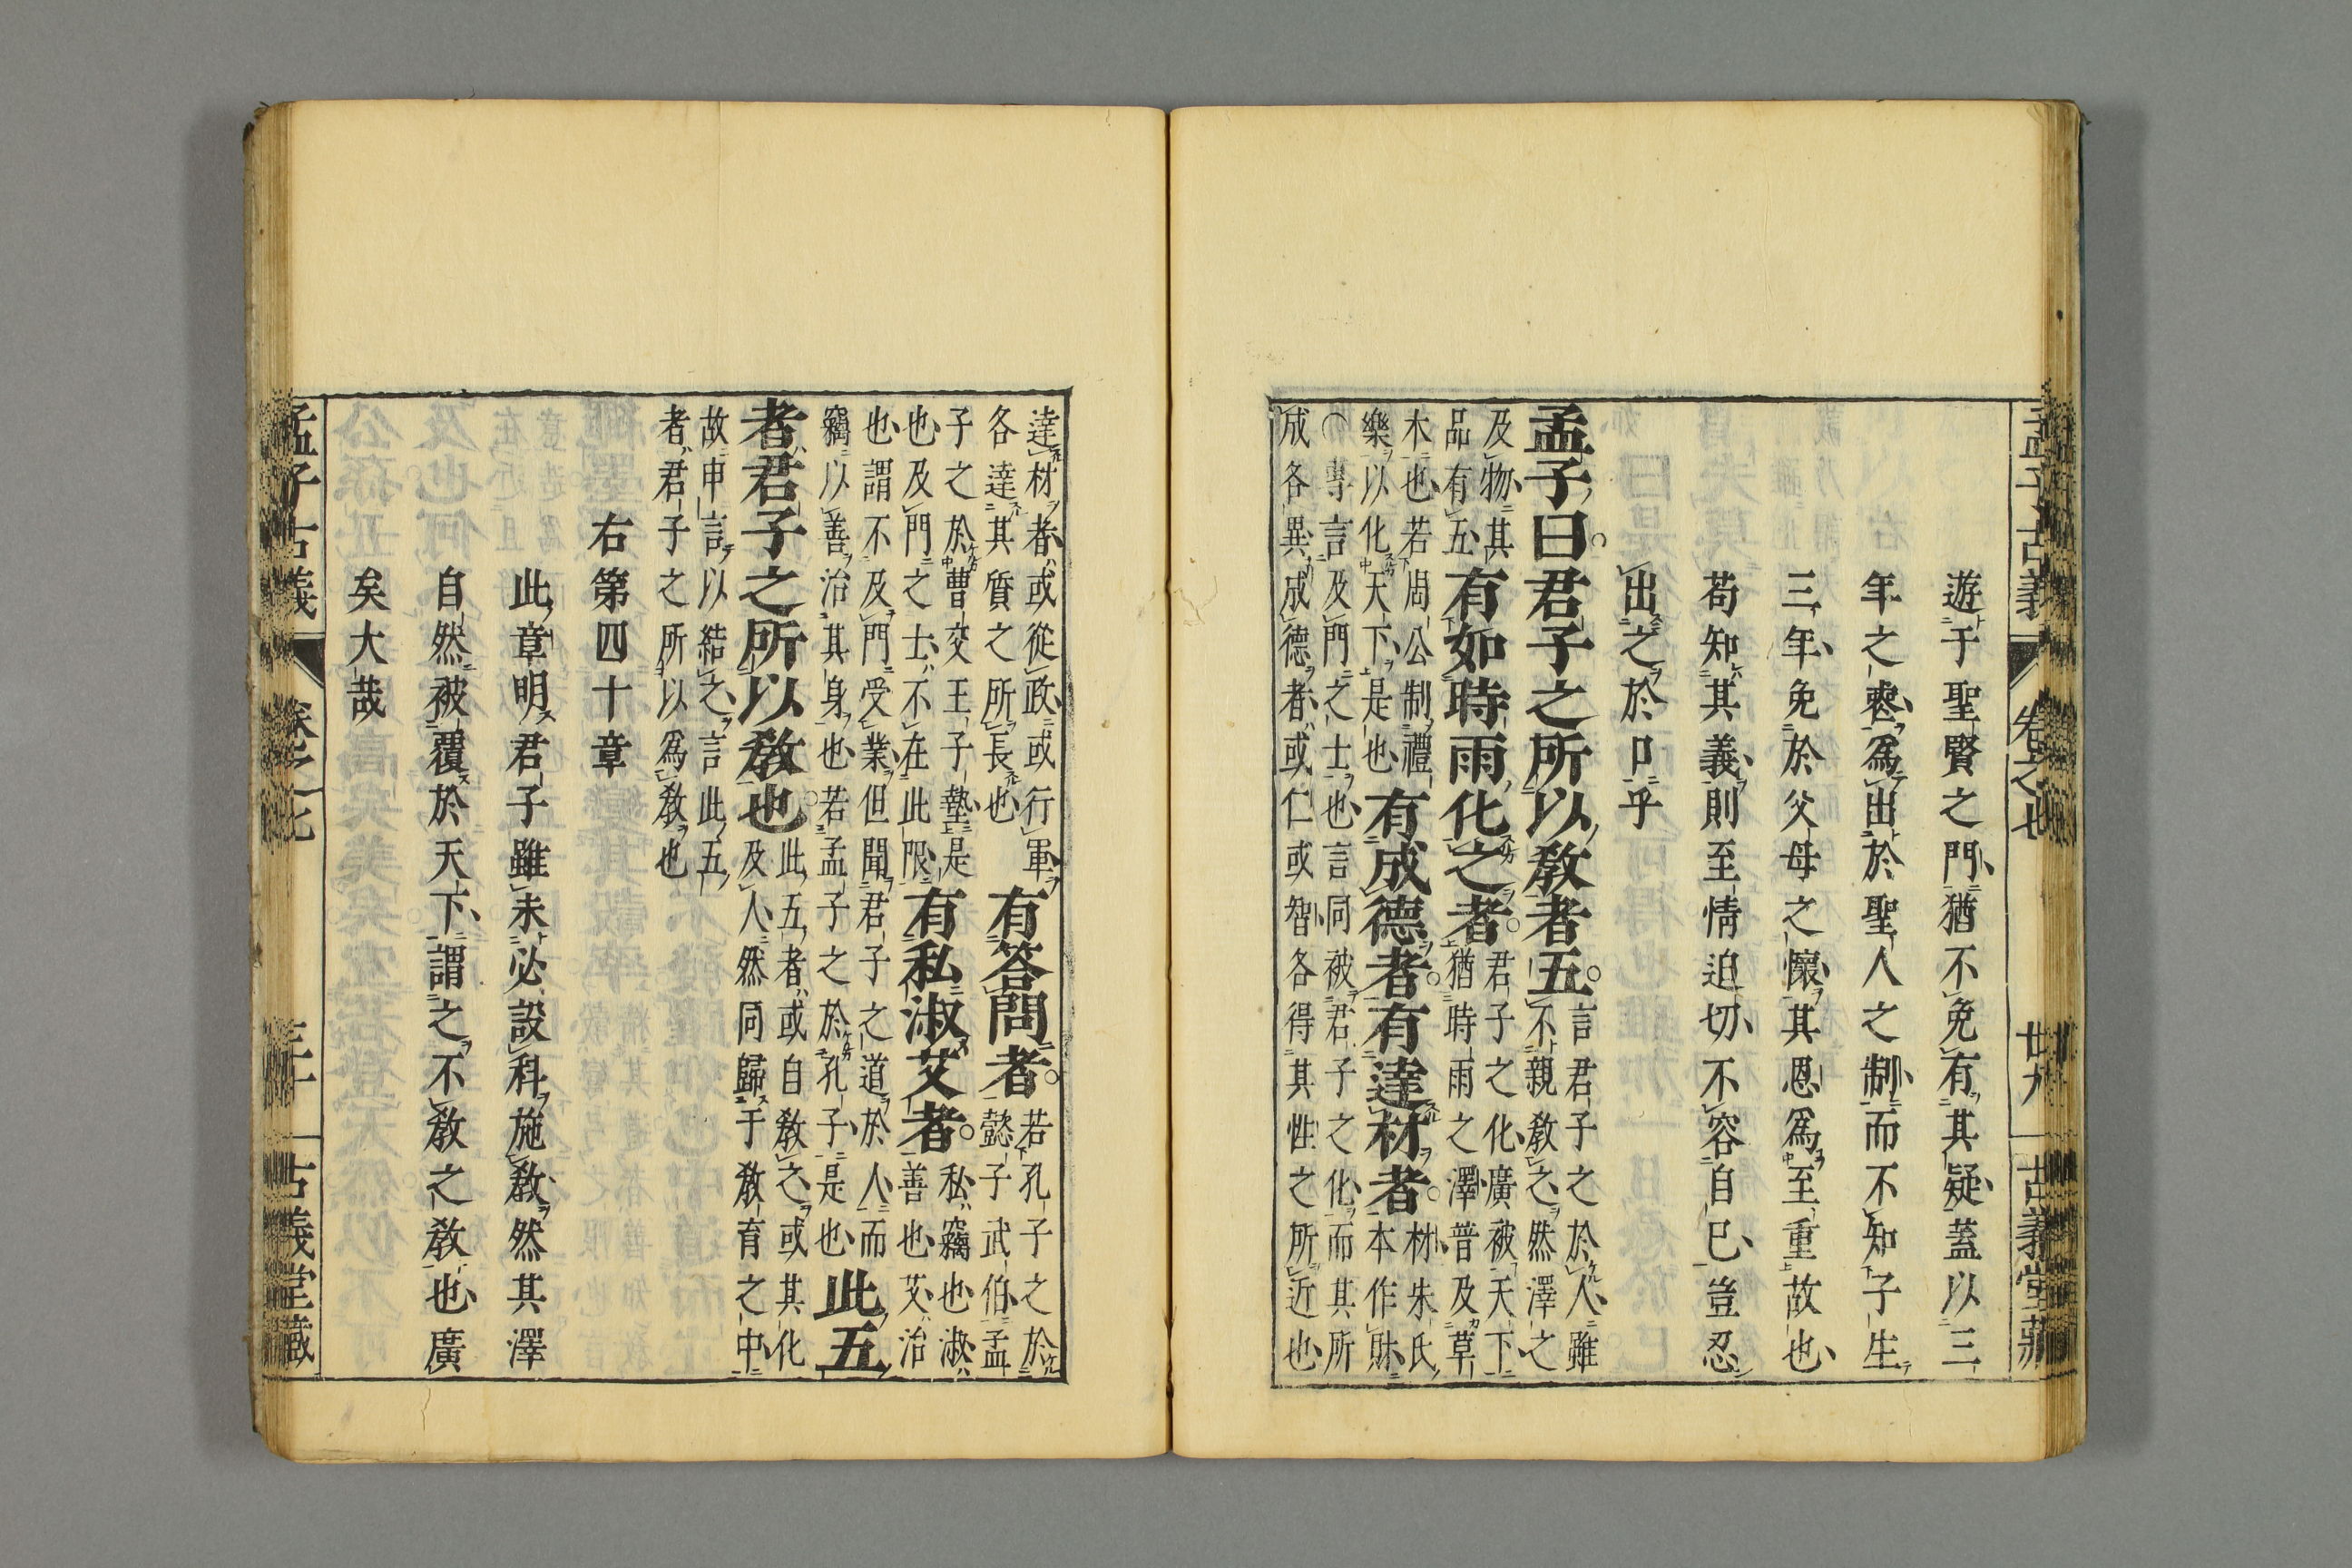 孟子古義 卷之七 廿九 古義堂藏
遊于聖賢之門猶不免有其疑蓋以三
年之喪爲出於聖人之制而不知子生
三年免於父母之懷其恩爲至重故也
苟知其義則至情迫切不容自已豈忍
出之於口乎
孟子曰君子之所以敎者五
言君子之於人雖
不親敎之然澤之
及物其
品有五
有如時雨化之者
君子之化廣被天下
猶時雨之澤普及草
木也若周公制禮
樂以化天下是也
有成德者有達材者
材朱氏
本作財
○專言及門之士也言同被君子之化而其所
成各異成德者或仁或智各得其性之所近也
達材者或從政或行軍
各達其質之所長也
有答問者
若孔子之於
懿子武伯孟
子之於曹交王子墊是
也及門之士不在此限
有私淑艾者
私竊也淑
善也艾治
也謂不及門受業但聞君子之道於人而
竊以善治其身也若孟子之於孔子是也
此五
者君子之所以敎也
此五者或自敎之或其化
及人然同歸于敎育之中
故申言以結之言此五
者君子之所以爲敎也
右第四十章
此章明君子雖未必設科施敎然其澤
自然被覆於天下謂之不敎之敎也廣
矣大哉
孟子古義 卷之七 三十 古義堂藏